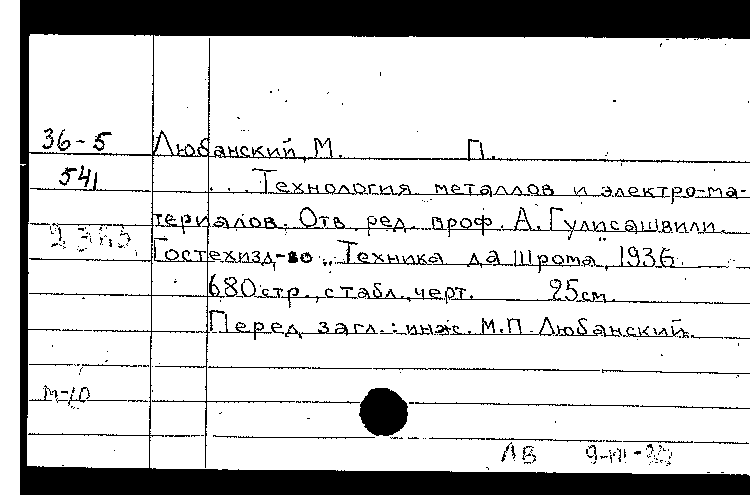 36-5 Любанский, М. П.
541 ...Технология металлов и электро-ма-
териалов. Отв. ред. проф. А. Гулисашвили.
Гостехизд-во „Техника да Шрома", 1936.
680 стр., с табл., черт. 25 см.
Перед загл.: инж. М.П. Любанский.
М-10
ЛВ